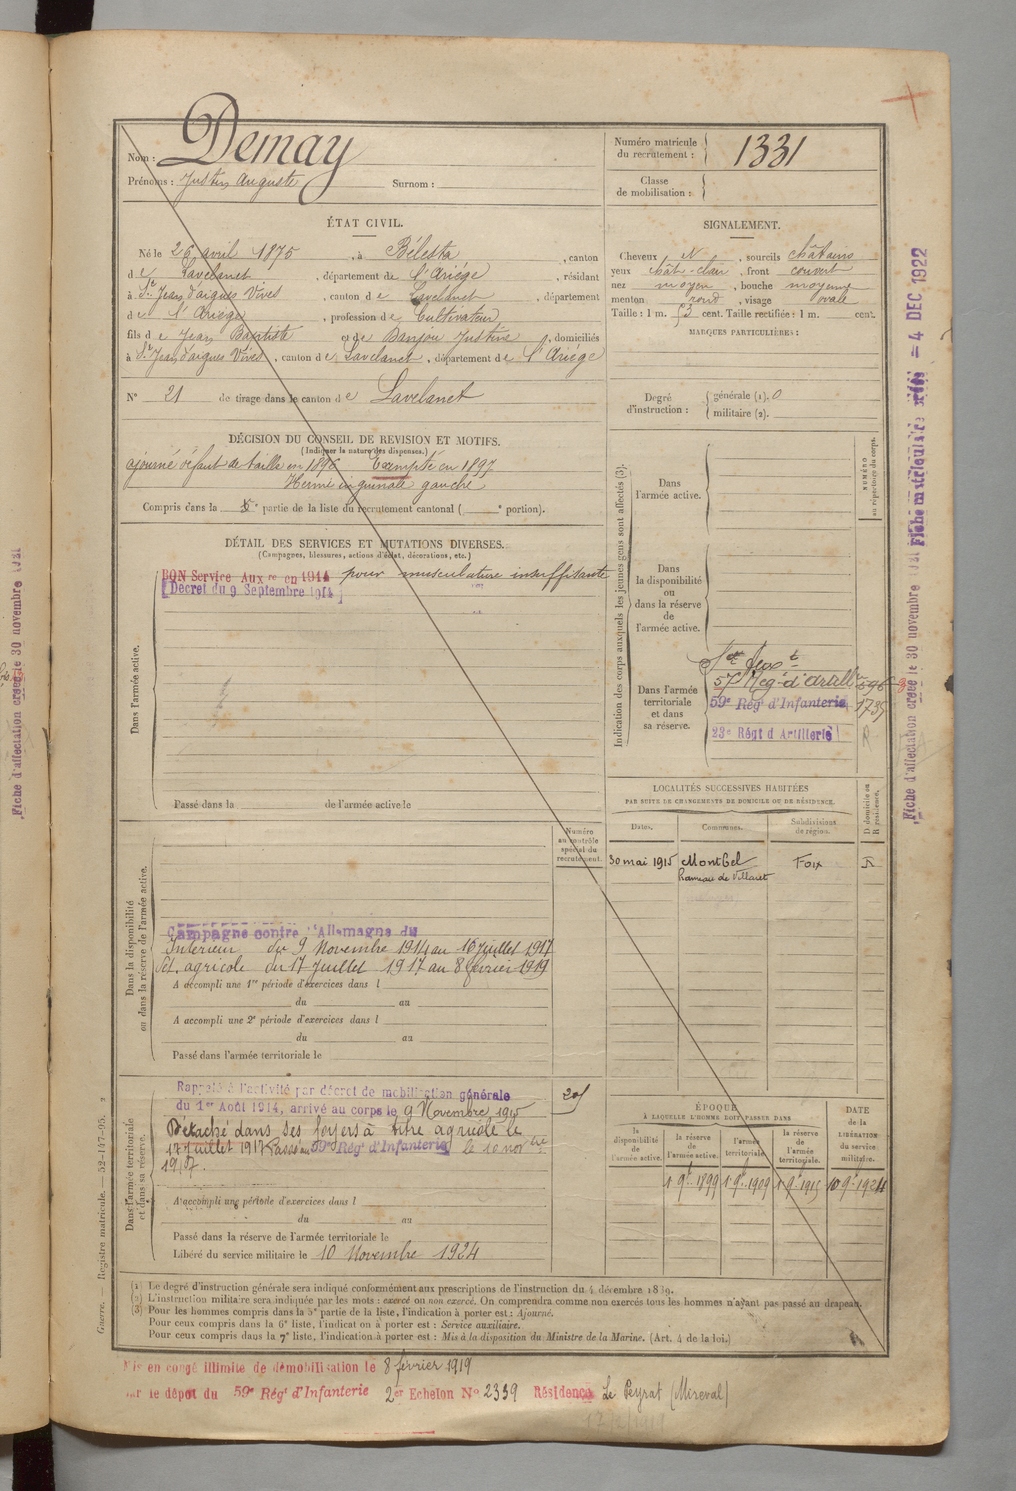 Nom : Demay
Prénoms : Justin Auguste Surnom :
Numéro matricule du recrutement : 1331
Classe de mobilisation :
ÉTAT CIVIL.
Né le 26 avril 1875, à Bélesta, canton
de Lavelanet, département de l'Ariège, résidant
à St Jean d'aigues Vives, canton de Lavelanet, département
de l'Ariège, profession de Cultivateur
fils de Jean Baptiste et de Banjou Justine, domiciliés
à St Jean d'aigues Vives, canton de Lavelanet, département de l'Ariège
N° 21 de tirage dans le canton de Lavelanet
SIGNALEMENT.
Cheveux N, sourcils châtains
yeux chât-clair, front couvert
nez moyen, bouche moyenne
menton rond, visage ovale
Taille : 1 m. 53 cent. Taille rectifiée : 1 m. cent.
MARQUES PARTICULIÈRES :
Degré d'instruction : générale (1). 0
militaire (2).
DÉCISION DU CONSEIL DE REVISION ET MOTIFS.
(Indiquer la nature des dispenses.)
ajourné défaut de taille en 1896 Exempté en 1897
Hernie inguinale gauche
Compris dans la 5e partie de la liste du recrutement cantonal ( e portion).
DÉTAIL DES SERVICES ET MUTATIONS DIVERSES.
(Campagnes, blessures, actions d'éclat, décorations, etc.)
BON Service Auxre en 1914 pour musculature insuffisante
[Décret du 9 Septembre 1914]
Dans l'armée active.
Passé dans la de l'armée active le
Indication des corps auxquels les jeunes gens sont affectés (3).
NUMÉRO au répertoire du corps.
Dans l'armée active.
Dans la disponibilité ou dans la réserve de l'armée active.
Dans l'armée territoriale et dans sa réserve.
57e Reg. d'Artillie
59e Régt d'Infanterie 1735
23e Régt d'Artillerie R
LOCALITÉS SUCCESSIVES HABITÉES
PAR SUITE DE CHANGEMENTS DE DOMICILE OU DE RÉSIDENCE.
D domicile ou R résidence.
Dates. Communes. Subdivisions de région.
30 mai 1915 Montbel Foix R
hameau de Villaret
Numéro au contrôle spécial du recrutement.
Dans la disponibilité ou dans la réserve de l'armée active.
Campagne contre l'Allemagne du
Intérieur du 9 Novembre 1914 au 16 Juillet 1917
Dét. agricole du 17 Juillet 1917 au 8 février 1919
A accompli une 1re période d'exercices dans l
du au
A accompli une 2e période d'exercices dans l
du au
Passé dans l'armée territoriale le
Dans l'armée territoriale et dans sa réserve.
Rappelé à l'activité par décret de mobilisation générale
du 1er Août 1914, arrivé au corps le 9 Novembre 1915
Détaché dans ses foyers à titre agricole le
17 Juillet 1917. Passé au 59e Régt d'Infanterie le 10 nov bre
1917.
A accompli une période d'exercices dans l
du au
Passé dans la réserve de l'armée territoriale le
Libéré du service militaire le 10 Novembre 1924
ÉPOQUE
À LAQUELLE L'HOMME DOIT PASSER DANS
la disponibilité de l'armée active. la réserve de l'armée active. l'armée territoriale. la réserve de l'armée territoriale.
DATE de la LIBÉRATION du service militaire.
1 9bre 1899 1 9bre 1909 1 9bre 1915 10 9bre 1924
(1) Le degré d'instruction générale sera indiqué conformément aux prescriptions de l'instruction du 4 décembre 1889.
(2) L'instruction militaire sera indiquée par les mots : exercé ou non exercé. On comprendra comme non exercés tous les hommes n'ayant pas passé au drapeau.
(3) Pour les hommes compris dans la 5e partie de la liste, l'indication à porter est : Ajourné.
Pour ceux compris dans la 6e liste, l'indication à porter est : Service auxiliaire.
Pour ceux compris dans la 7e liste, l'indication à porter est : Mis à la disposition du Ministre de la Marine. (Art. 4 de la loi.)
Mis en congé illimité de démobilisation le 8 février 1919
par le dépôt du 59e Régt d'Infanterie 2er Echelon No 2339 Résidence Le Peyrat (Mireval)
Guerre. — Registre matricule. — 52-147-95.
Fiche d'affectation créée le 30 novembre 1921
Fiche matriculaire
4 DEC 1922